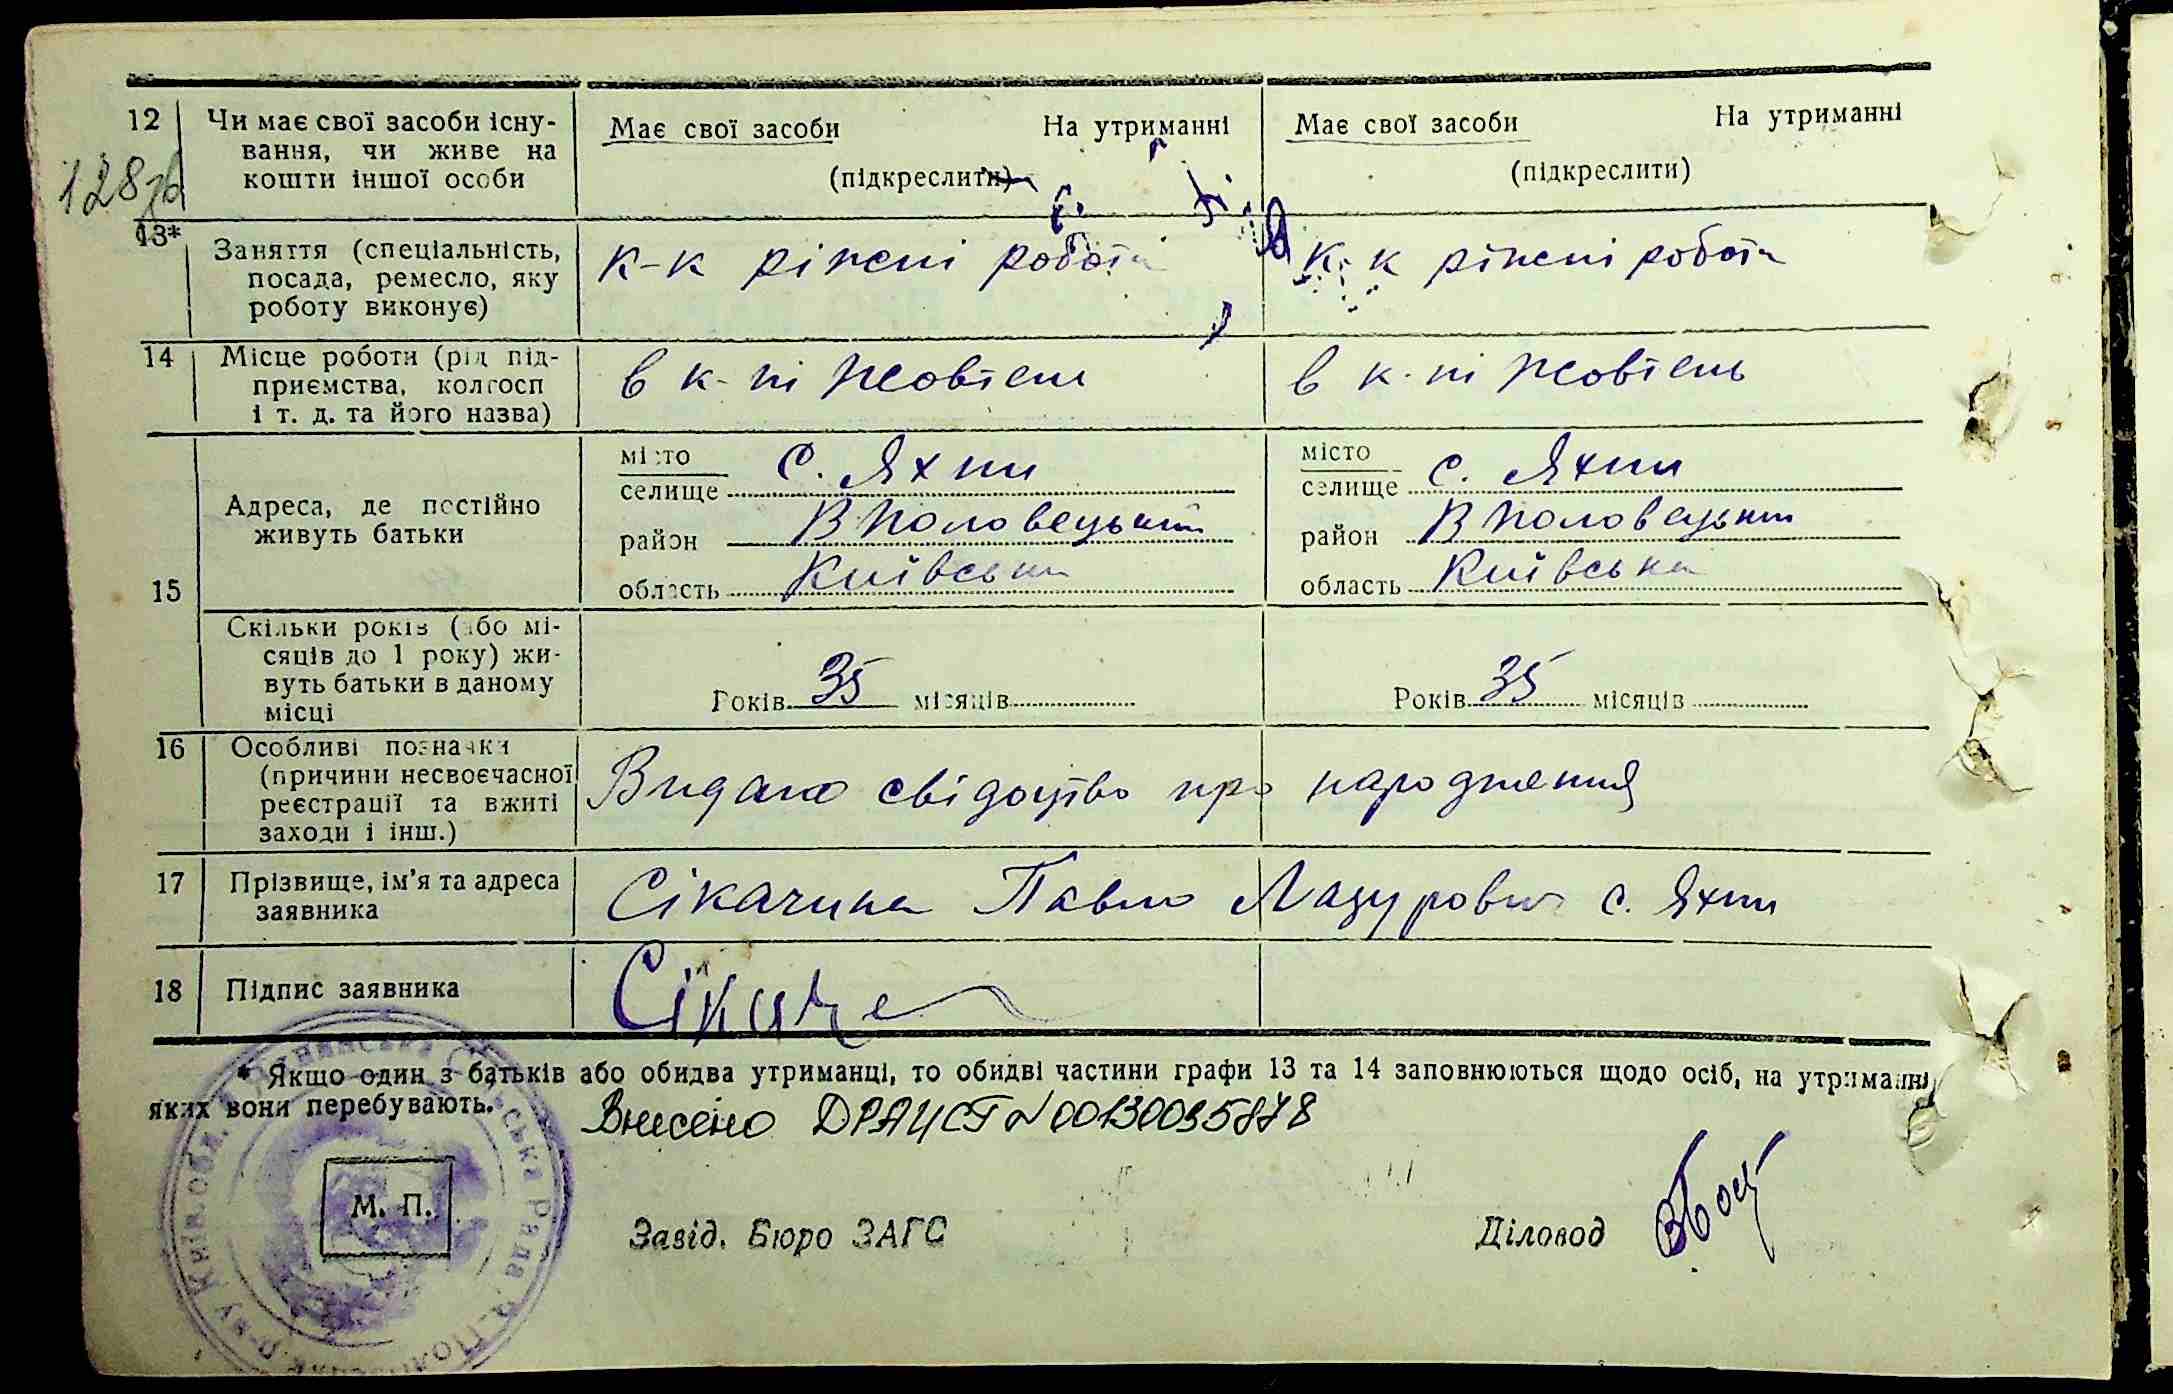 12 Чи має свої засоби існу-
вання, чи живе на
кошти іншої особи
Має свої засоби На утриманні
(підкреслити)
Має свої засоби На утриманні
(підкреслити)
128зв
13*
Заняття (спеціальність,
посада, ремесло, яку
роботу виконує)
к-к ріжні роботи
к-к ріжні роботи
14 Місце роботи (рід під-
приємства, колгосп
і т. д. та його назва)
в к-пі Жовтень
в к-пі Жовтень
15
Адреса, де постійно
живуть батьки
місто
селище с. Яхни
район В Половецький
область Київська
місто
селище с. Яхни
район В Половецький
область Київська
Скільки років (або мі-
сяців до 1 року) жи-
вуть батьки в даному
місці
Років 35 місяців
Років 35 місяців
16 Особливі позначки
(причини несвоєчасної
реєстрації та вжиті
заходи і інш.)
Видано свідоцтво про народження
17 Прізвище, ім'я та адреса
заявника
Сікачина Павло Лазурович с. Яхни
18 Підпис заявника
* Якщо один з батьків або обидва утриманці, то обидві частини графи 13 та 14 заповнюються щодо осіб, на утриманні
яких вони перебувають.
Внесено ДРАЦСГ № 00130035878
М. П.
Завід. Бюро ЗАГС
Діловод